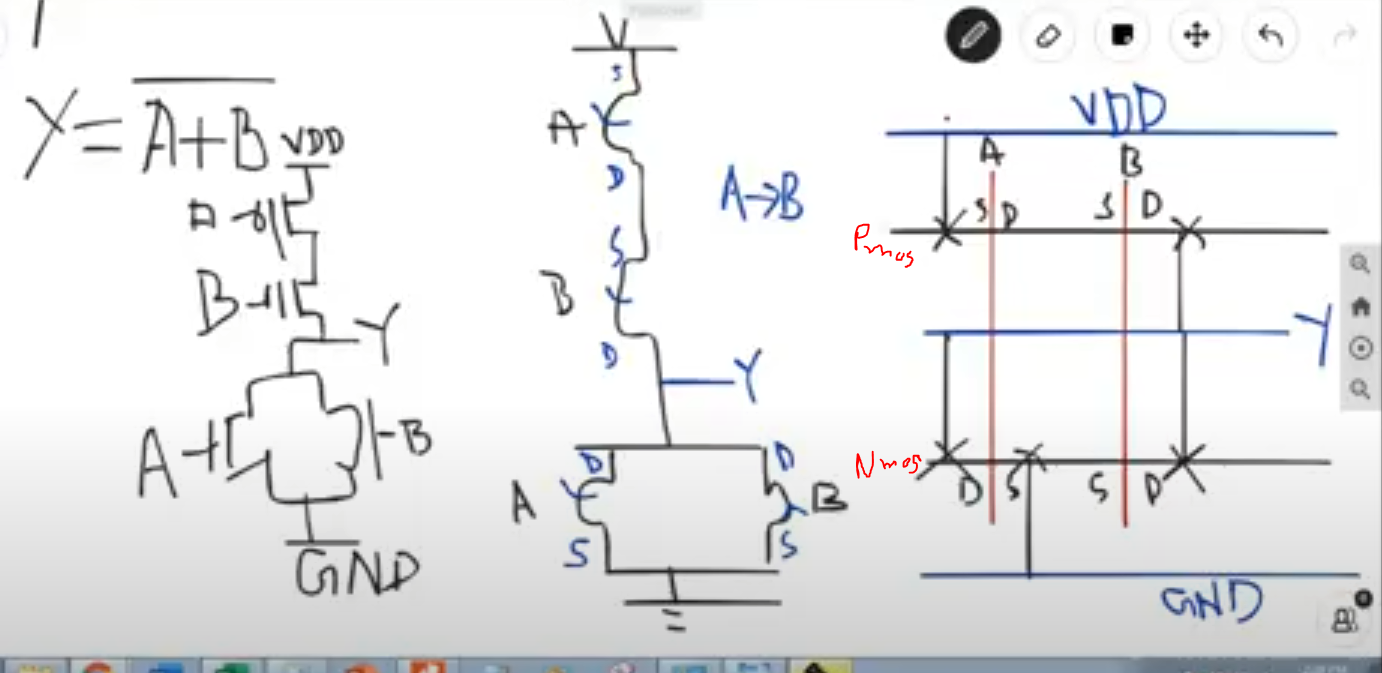 Y = A+B
VDD
A
B
Y
A
B
GND
V
S
A
D
S
B
D
Y
D
D
A
B
S
S
A→B
VDD
A
B
S D
S D
Pmos
Y
Nmos
D S
S D
GND